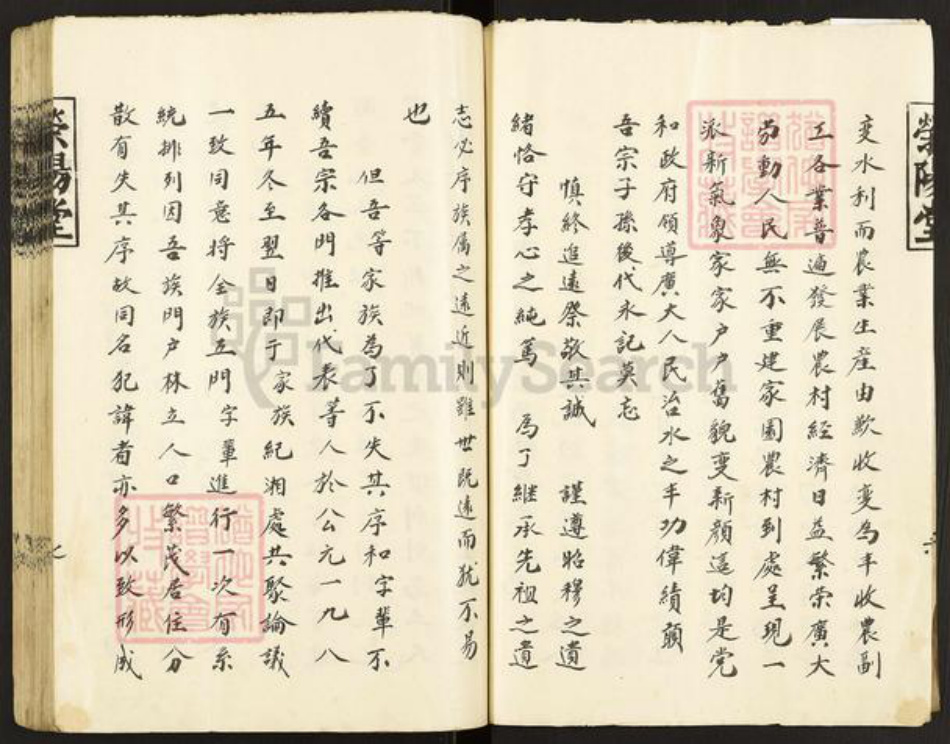 变水利而農業生産由歉收变為丰收農副
工各業普遍發展農村經濟日益繁荣廣大
劳動人民無不重建家園農村到處呈現一
派新氣象家家户户舊貌变新顔這均是党
和政府领導廣大人民治水之丰功偉績願
吾宗子孫後代永記莫忘
慎終追遠祭敬其誠 謹遵昭穆之遺
緒恪守孝心之純篤 為了继承先祖之遺
志必序族属之遠近則雖世既遠而犹不易
也
但吾等家族為了不失其序和字輩不
續吾宗各門推出代表等人於公元一九八
五年冬至翌日即于家族紀湘處共聚論議
一致同意将全族五門字輩進行一次有系
統排列因吾族門户林立人口繁茂居住分
散有失其序故同名犯諱者亦多以致形成
滎陽堂
滎陽堂
FamilySearch